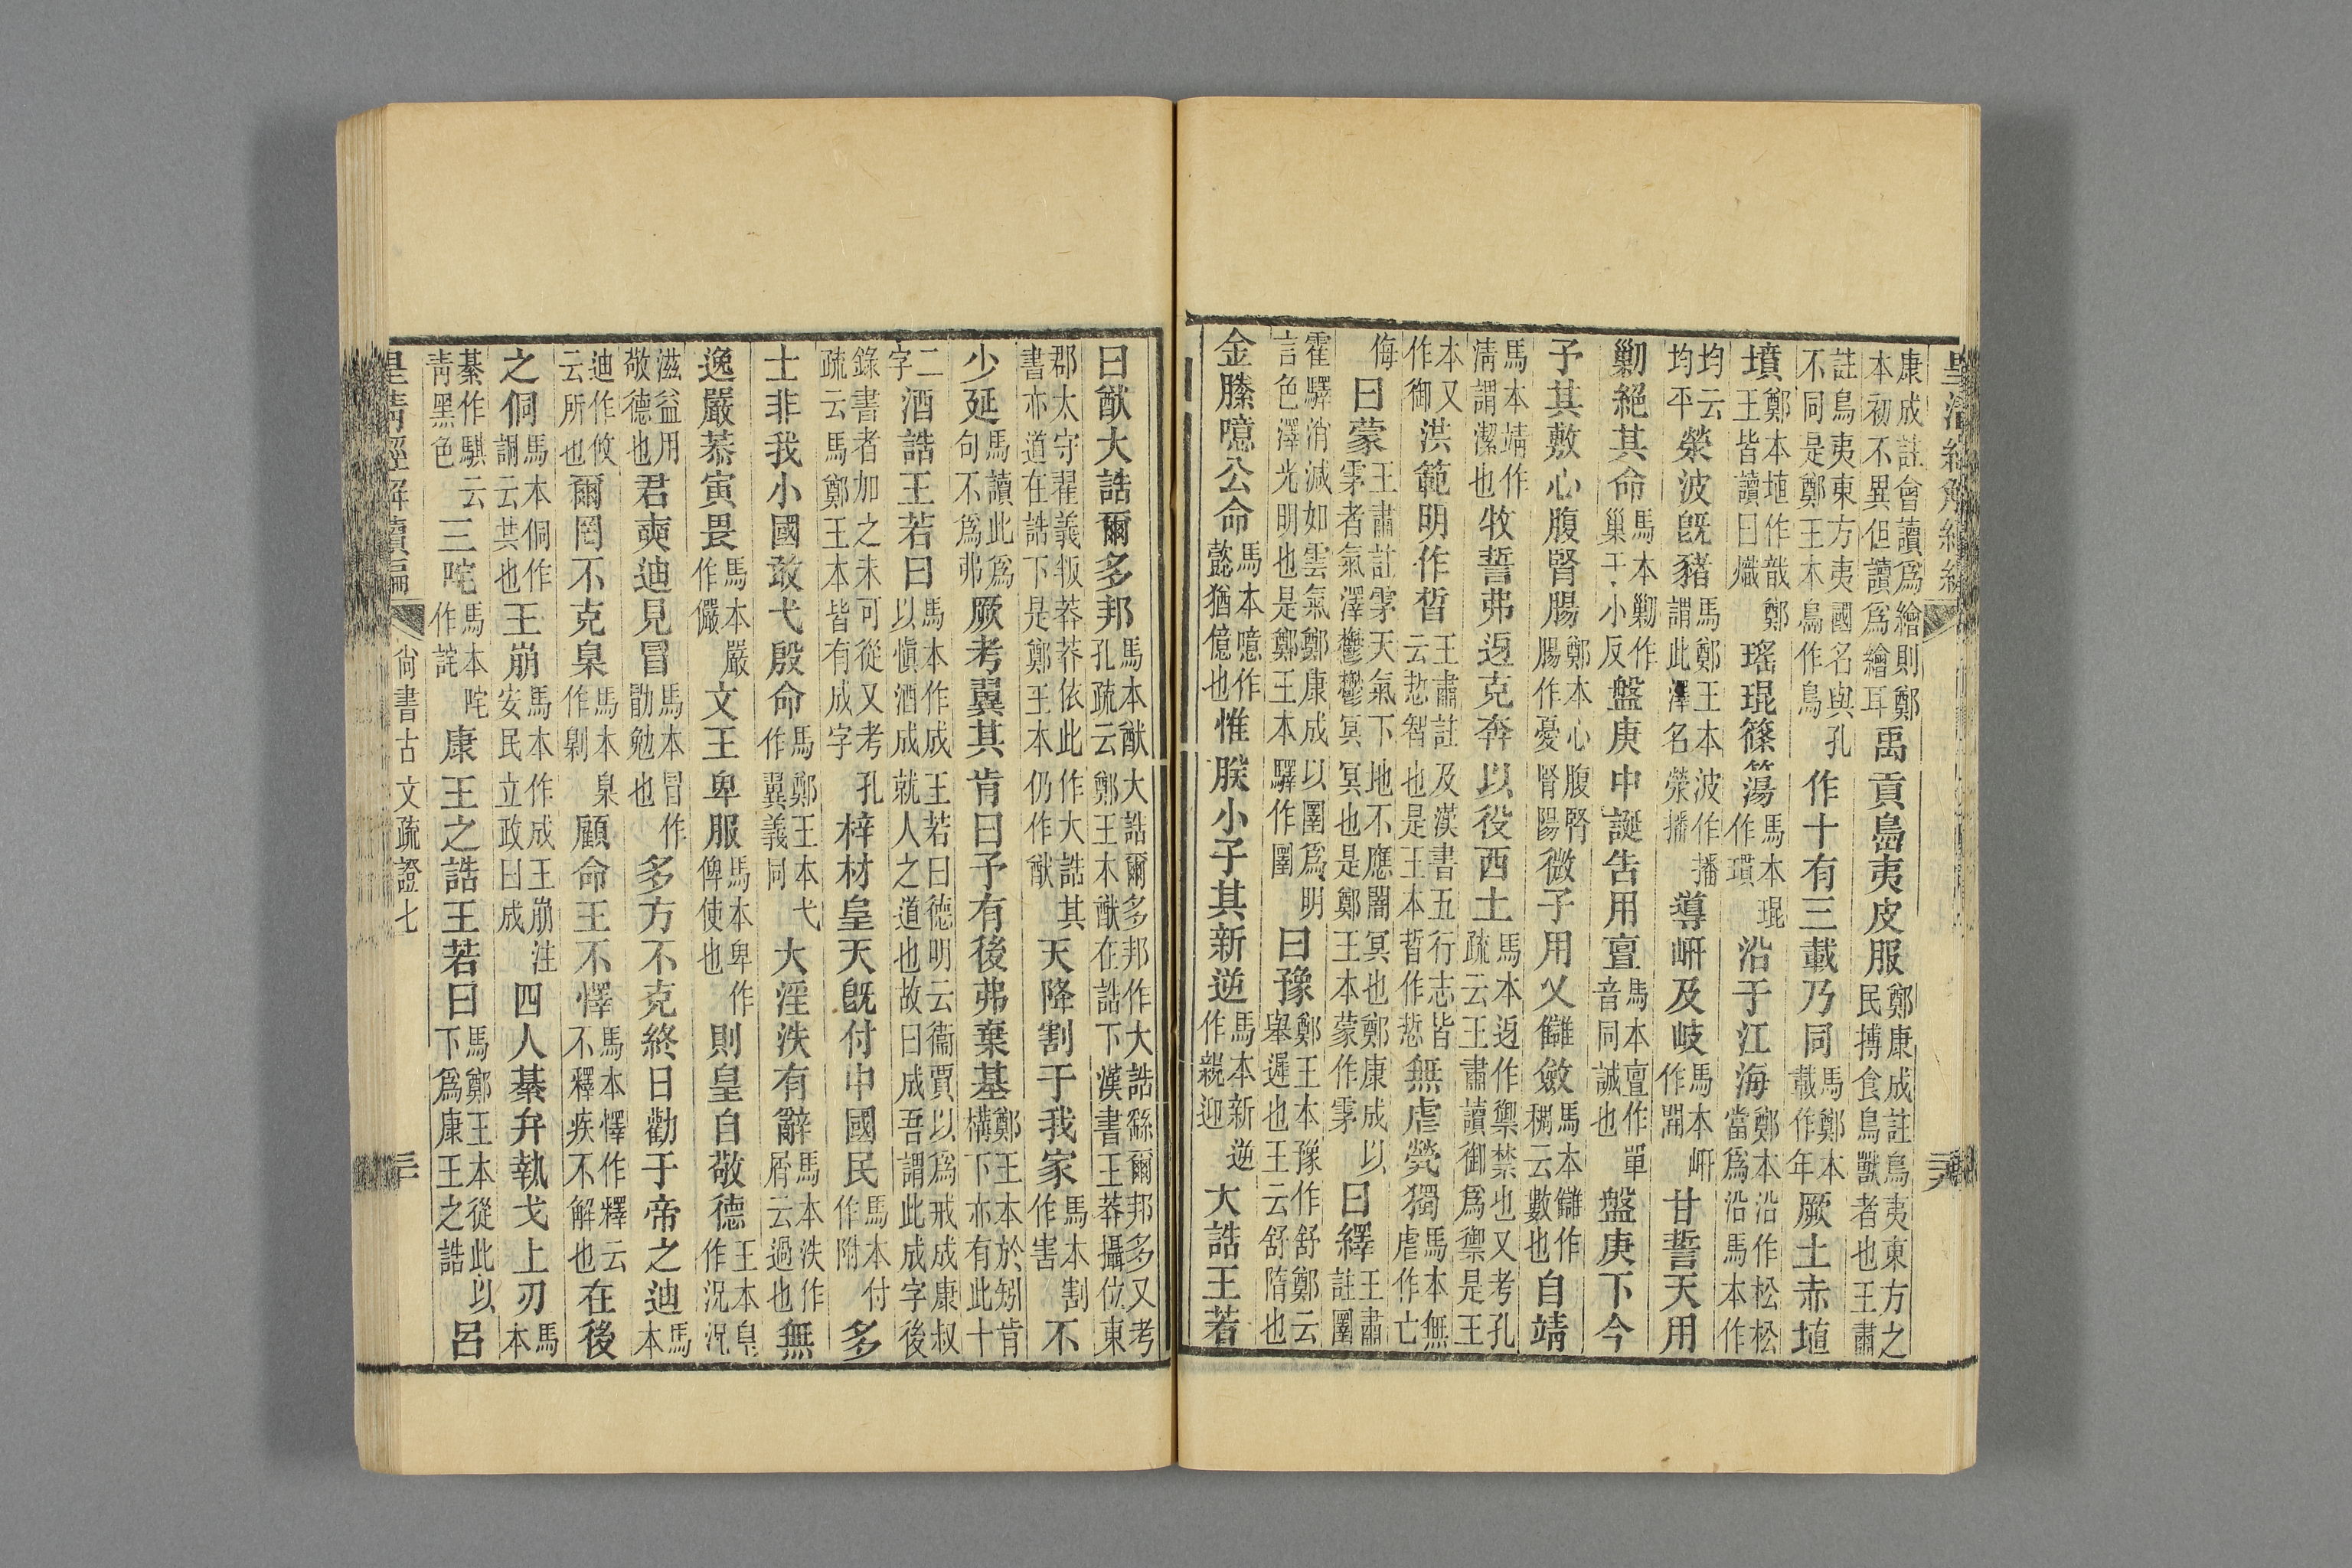 康成註會讀爲繪則鄭本初不異但讀爲繪耳禹貢島夷皮服鄭康成註鳥夷東方之民搏食鳥獸者也王肅
註鳥夷東方夷國名與孔不同是鄭王本島作鳥作十有三載乃同馬鄭本載作年厥土赤埴
墳鄭本埴作戠鄭王皆讀曰熾瑤琨篠簜馬本琨作瑻沿于江海鄭本沿作松松當爲沿馬本作
均云均平滎波旣豬馬鄭王本波作播謂此澤名滎播導岍及岐馬本岍作開甘誓天用
勦絕其命馬本勦作巢子小反盤庚中誕告用亶馬本亶作單音同誠也盤庚下今
予其敷心腹腎腸鄭本心腹腎腸作憂腎陽微子用乂讎斂馬本讎作稠云數也自靖
馬本靖作淸謂潔也牧誓弗迓克奔以役西土馬本迓作禦禁也又考孔疏云王肅讀御爲禦是王
本又作御洪範明作晢王肅註及漢書五行志皆云悊智也是王本晢作悊無虐煢獨馬本無虐作亡
侮曰蒙王肅註雺天氣下地不應闇冥也鄭康成以雺者氣澤鬱鬱冥冥也是鄭王本蒙作雺曰繹王肅註圛
霍驛消減如雲氣鄭康成以圛爲明言色澤光明也是鄭王本驛作圛曰豫鄭王本豫作舒鄭云舉遲也王云舒隋也
金縢噫公命馬本噫作懿猶億也惟朕小子其新逆馬本新逆作親迎大誥王若
曰猷大誥爾多邦馬本猷大誥爾多邦作大誥繇爾邦多又考孔疏云鄭王本猷在誥下漢書王莽攝位東
郡太守翟義叛莽莽依此作大誥其書亦道在誥下是鄭王本仍作猷天降割于我家馬本割作害不
少延馬讀此爲句不爲弗厥考翼其肯曰予有後弗棄基鄭王本於矧肯構下亦有此十
二字酒誥王若曰馬本作成王若曰德明云衞賈以爲戒成康叔以愼酒成就人之道也故曰成吾謂此成字後
錄書者加之未可從又考孔疏云馬鄭王本皆有成字梓材皇天旣付中國民馬本付作附多
士非我小國敢弋殷命馬鄭王本弋作翼義同大淫泆有辭馬本泆作屑云過也無
逸嚴恭寅畏馬本嚴作儼文王卑服馬本卑作俾使也則皇自敬德王本皇作況況
滋益用敬德也君奭迪見冒馬本冒作勖勉也多方不克終日勸于帝之迪馬本
迪作攸云所也爾罔不克臬馬本臬作剿顧命王不懌馬本懌作釋云不釋疾不解也在後
之侗馬本侗作詷云共也王崩馬本作成王崩注安民立政曰成四人綦弁執戈上刃馬本
綦作騏云靑黑色三咤馬本咤作詫康王之誥王若曰馬鄭王本從此以下爲康王之誥呂
皇清經解續編 尙書古文疏證七